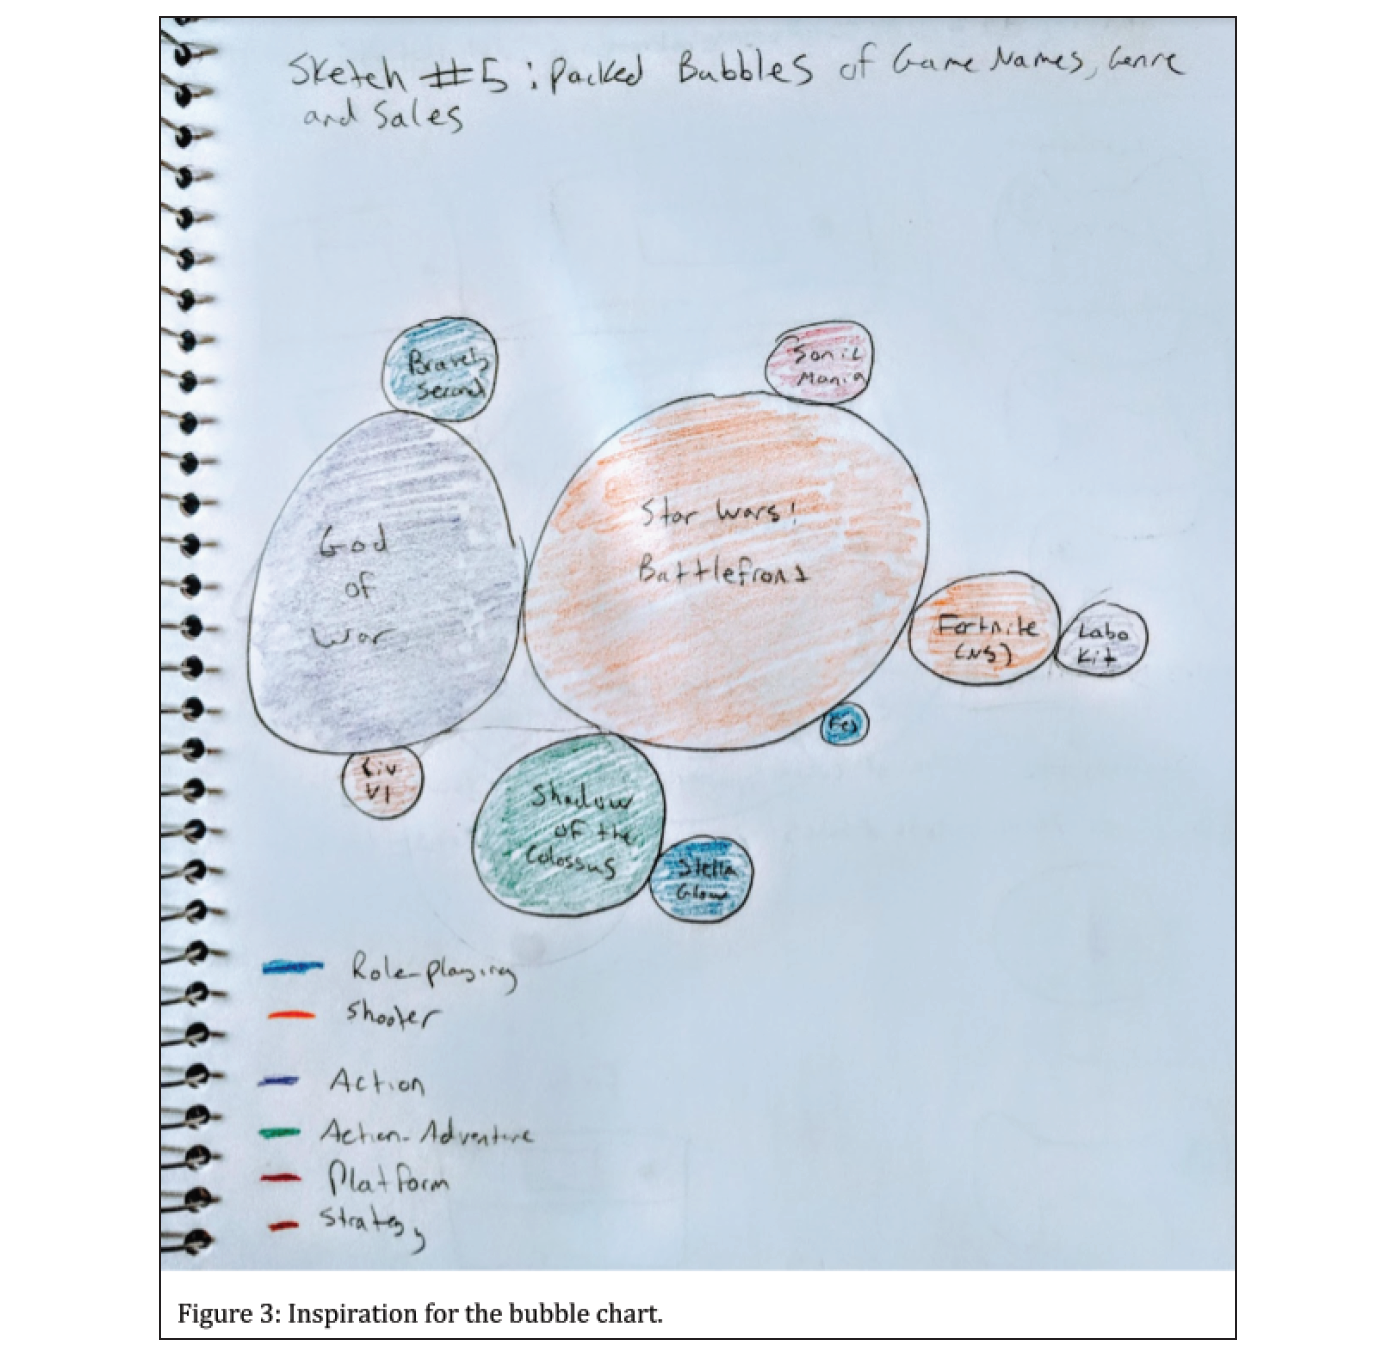 Sketch #5: Packed Bubbles of Game Names, Genre
and Sales
Bravely
Second
Sonic
Mania
God
of
War
Star Wars:
Battlefront
Fortnite
(NS)
Labo
Kit
Civ
VI
Shadow
of the
Colossus
Stella
Glow
Role-playing
Shooter
Action
Action-Adventure
Platform
Strategy
Figure 3: Inspiration for the bubble chart.